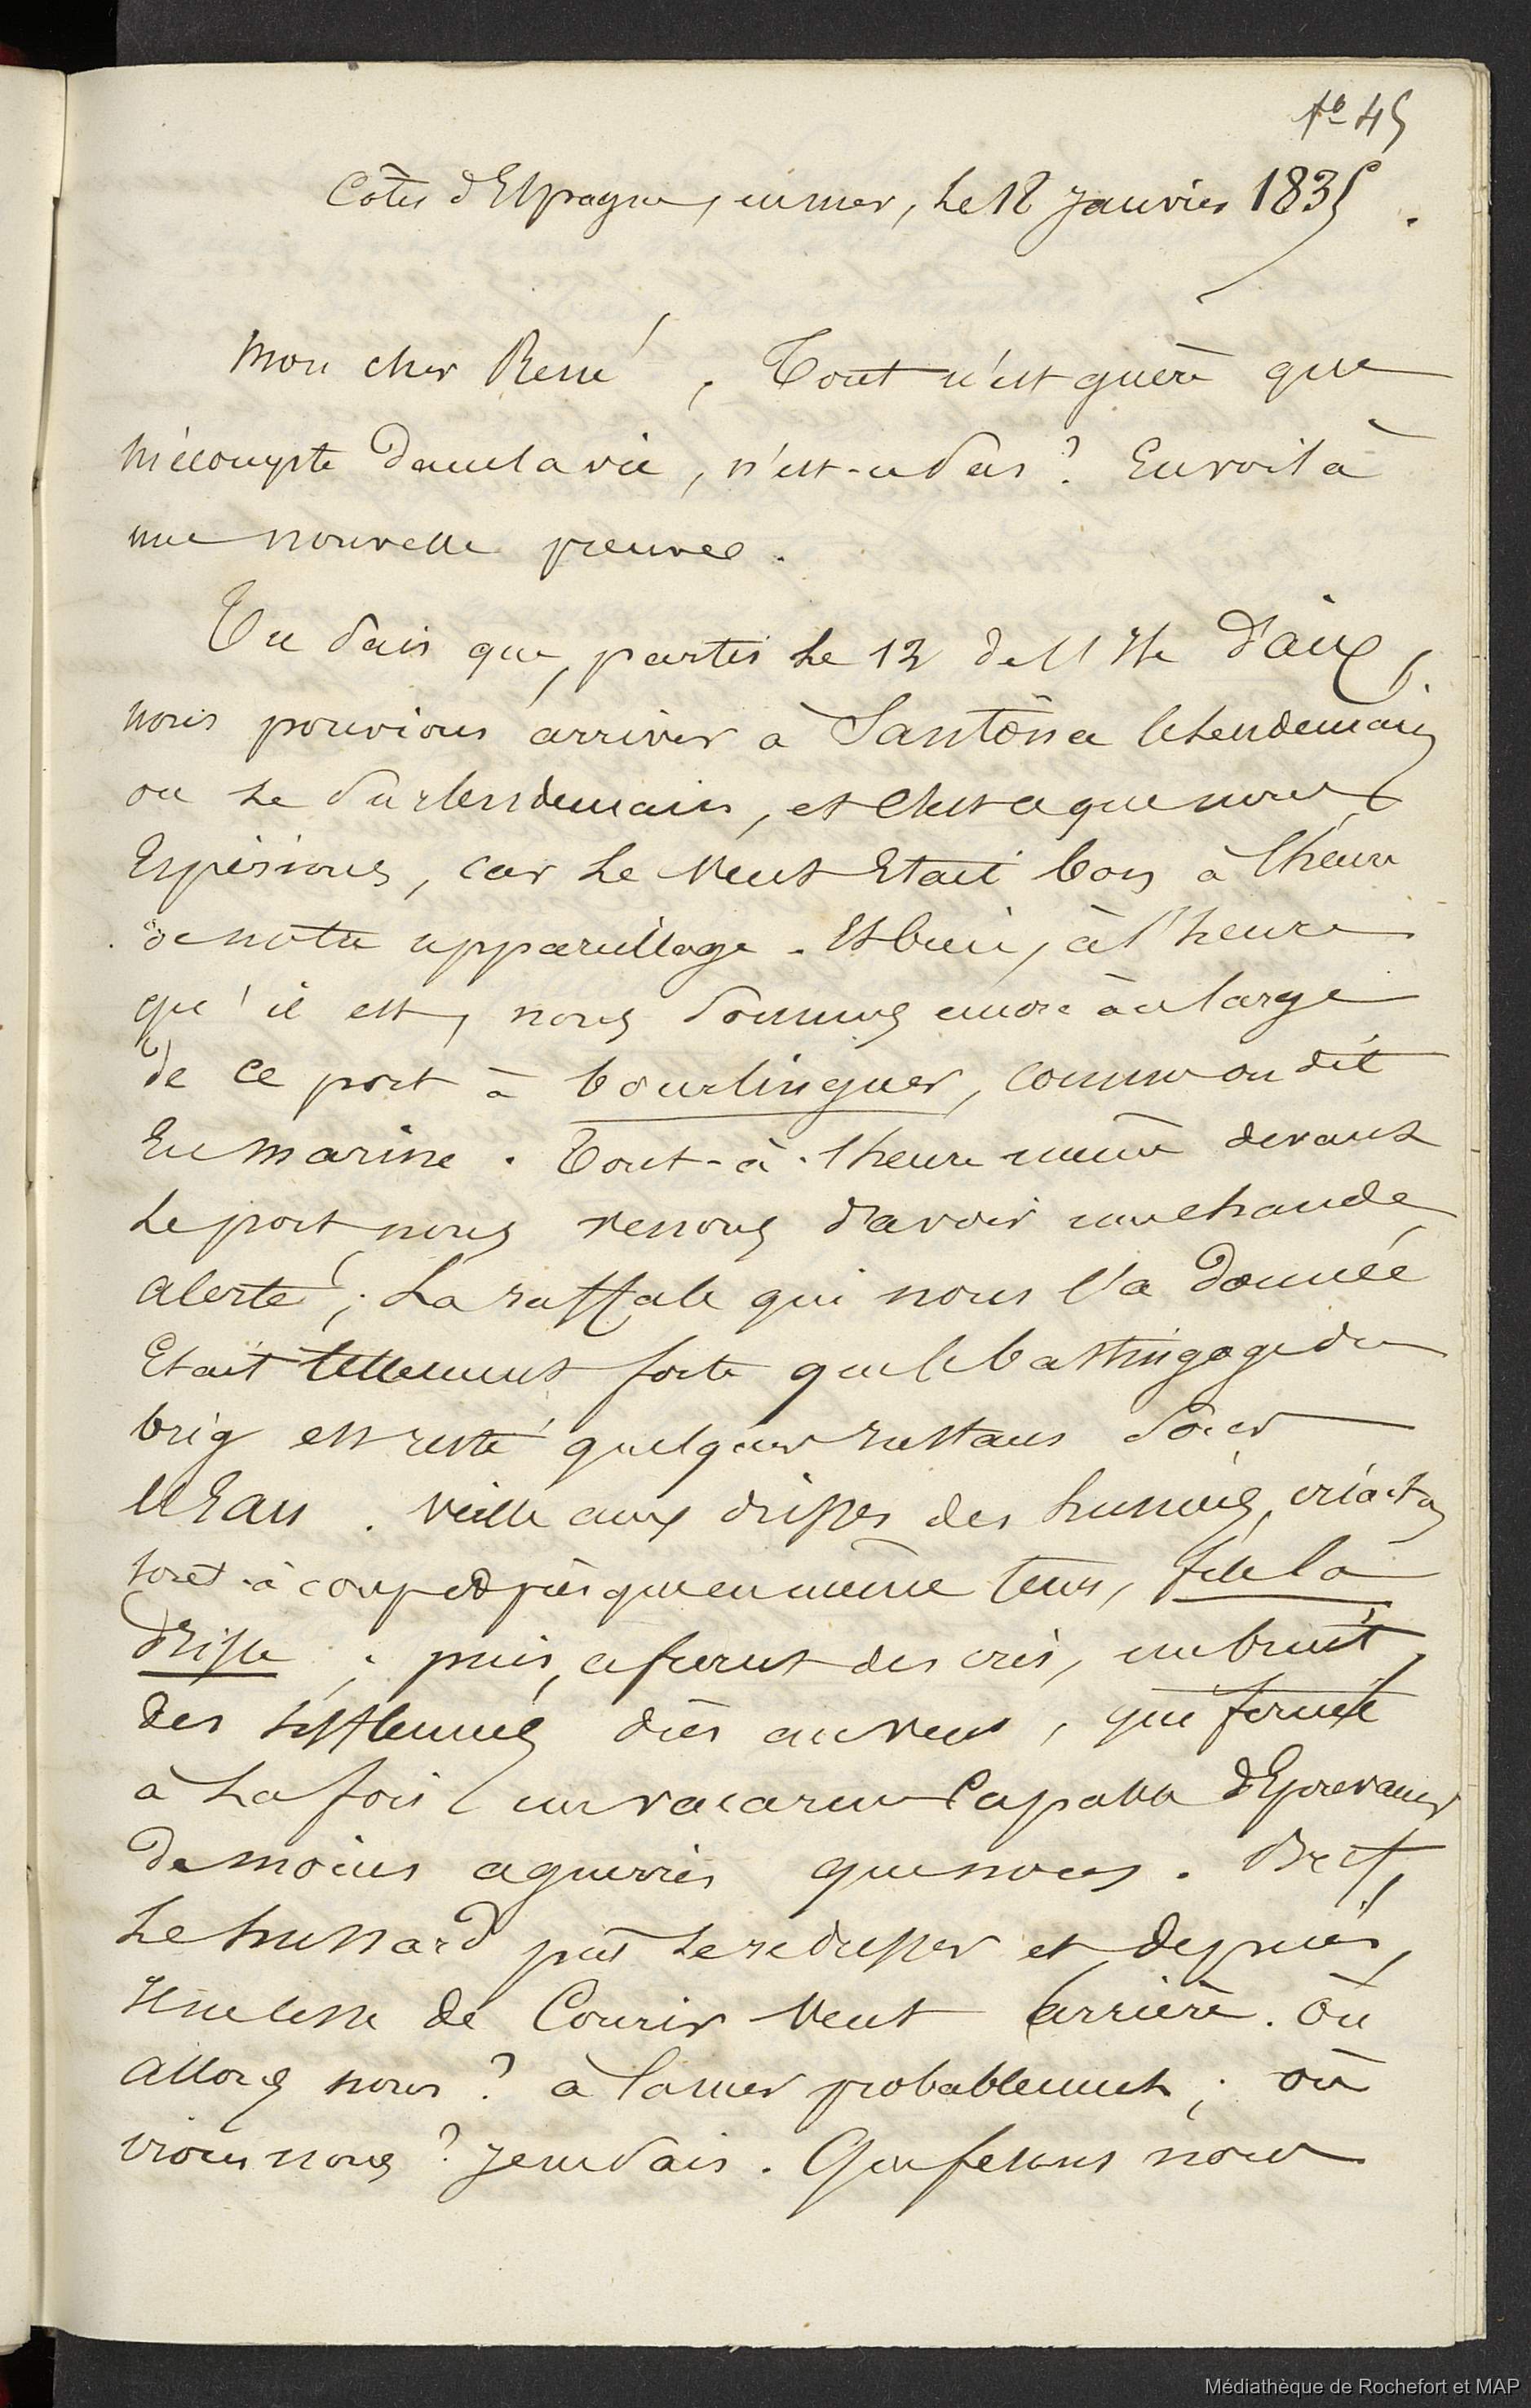 N° 45
Côtes d'Espagne, en mer, le 18 Janvier 1835.
Mon cher René, Tout n'est guère que
mécompte dans la vie, n'est-ce pas ? En voilà
une nouvelle preuve.
Tu sais que, partis le 12 de l'Ile d'aix,
nous pouvions arriver à Santôna le lendemain
ou le surlendemain, et c'est ce que nous
Espérions, car le vent Etait bon à l'heure
de notre appareillage. Et bien, à l'heure
qu'il est, nous sommes encore au large
de ce port à bourlinguer, comme on dit
En marine. Tout-à-l'heure même devant
le port nous venons d'avoir une chaude
alerte ; La raffale qui nous l'a donnée
Etait tellement forte que le bastingage du
brig est resté quelques instans sous
l'Eau. Veille aux drisses des huniers, cria-t-on
tout-à-coup et presque en même tems, file la
drisse ; puis, ce furent des cris, un bruit,
des sifflemens dûs au vent, qui fermait
à la fois un vacarme capable d'Epouvanter
de moins aguerris que nous. Bref,
le hussard pût se redresser et depuis,
Il ne cesse de Courir vent arrière. Où
allons nous ? à la mer probablement ; où
irons nous ? Je ne sais. Que ferons nous
Médiathèque de Rochefort et MAP